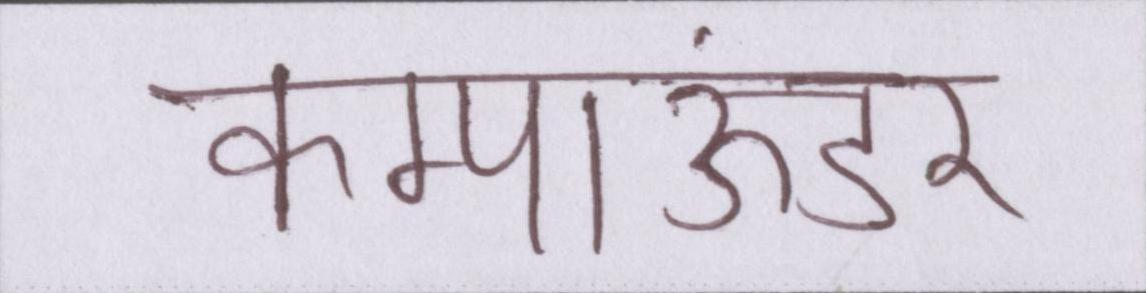 कम्पाऊंडर